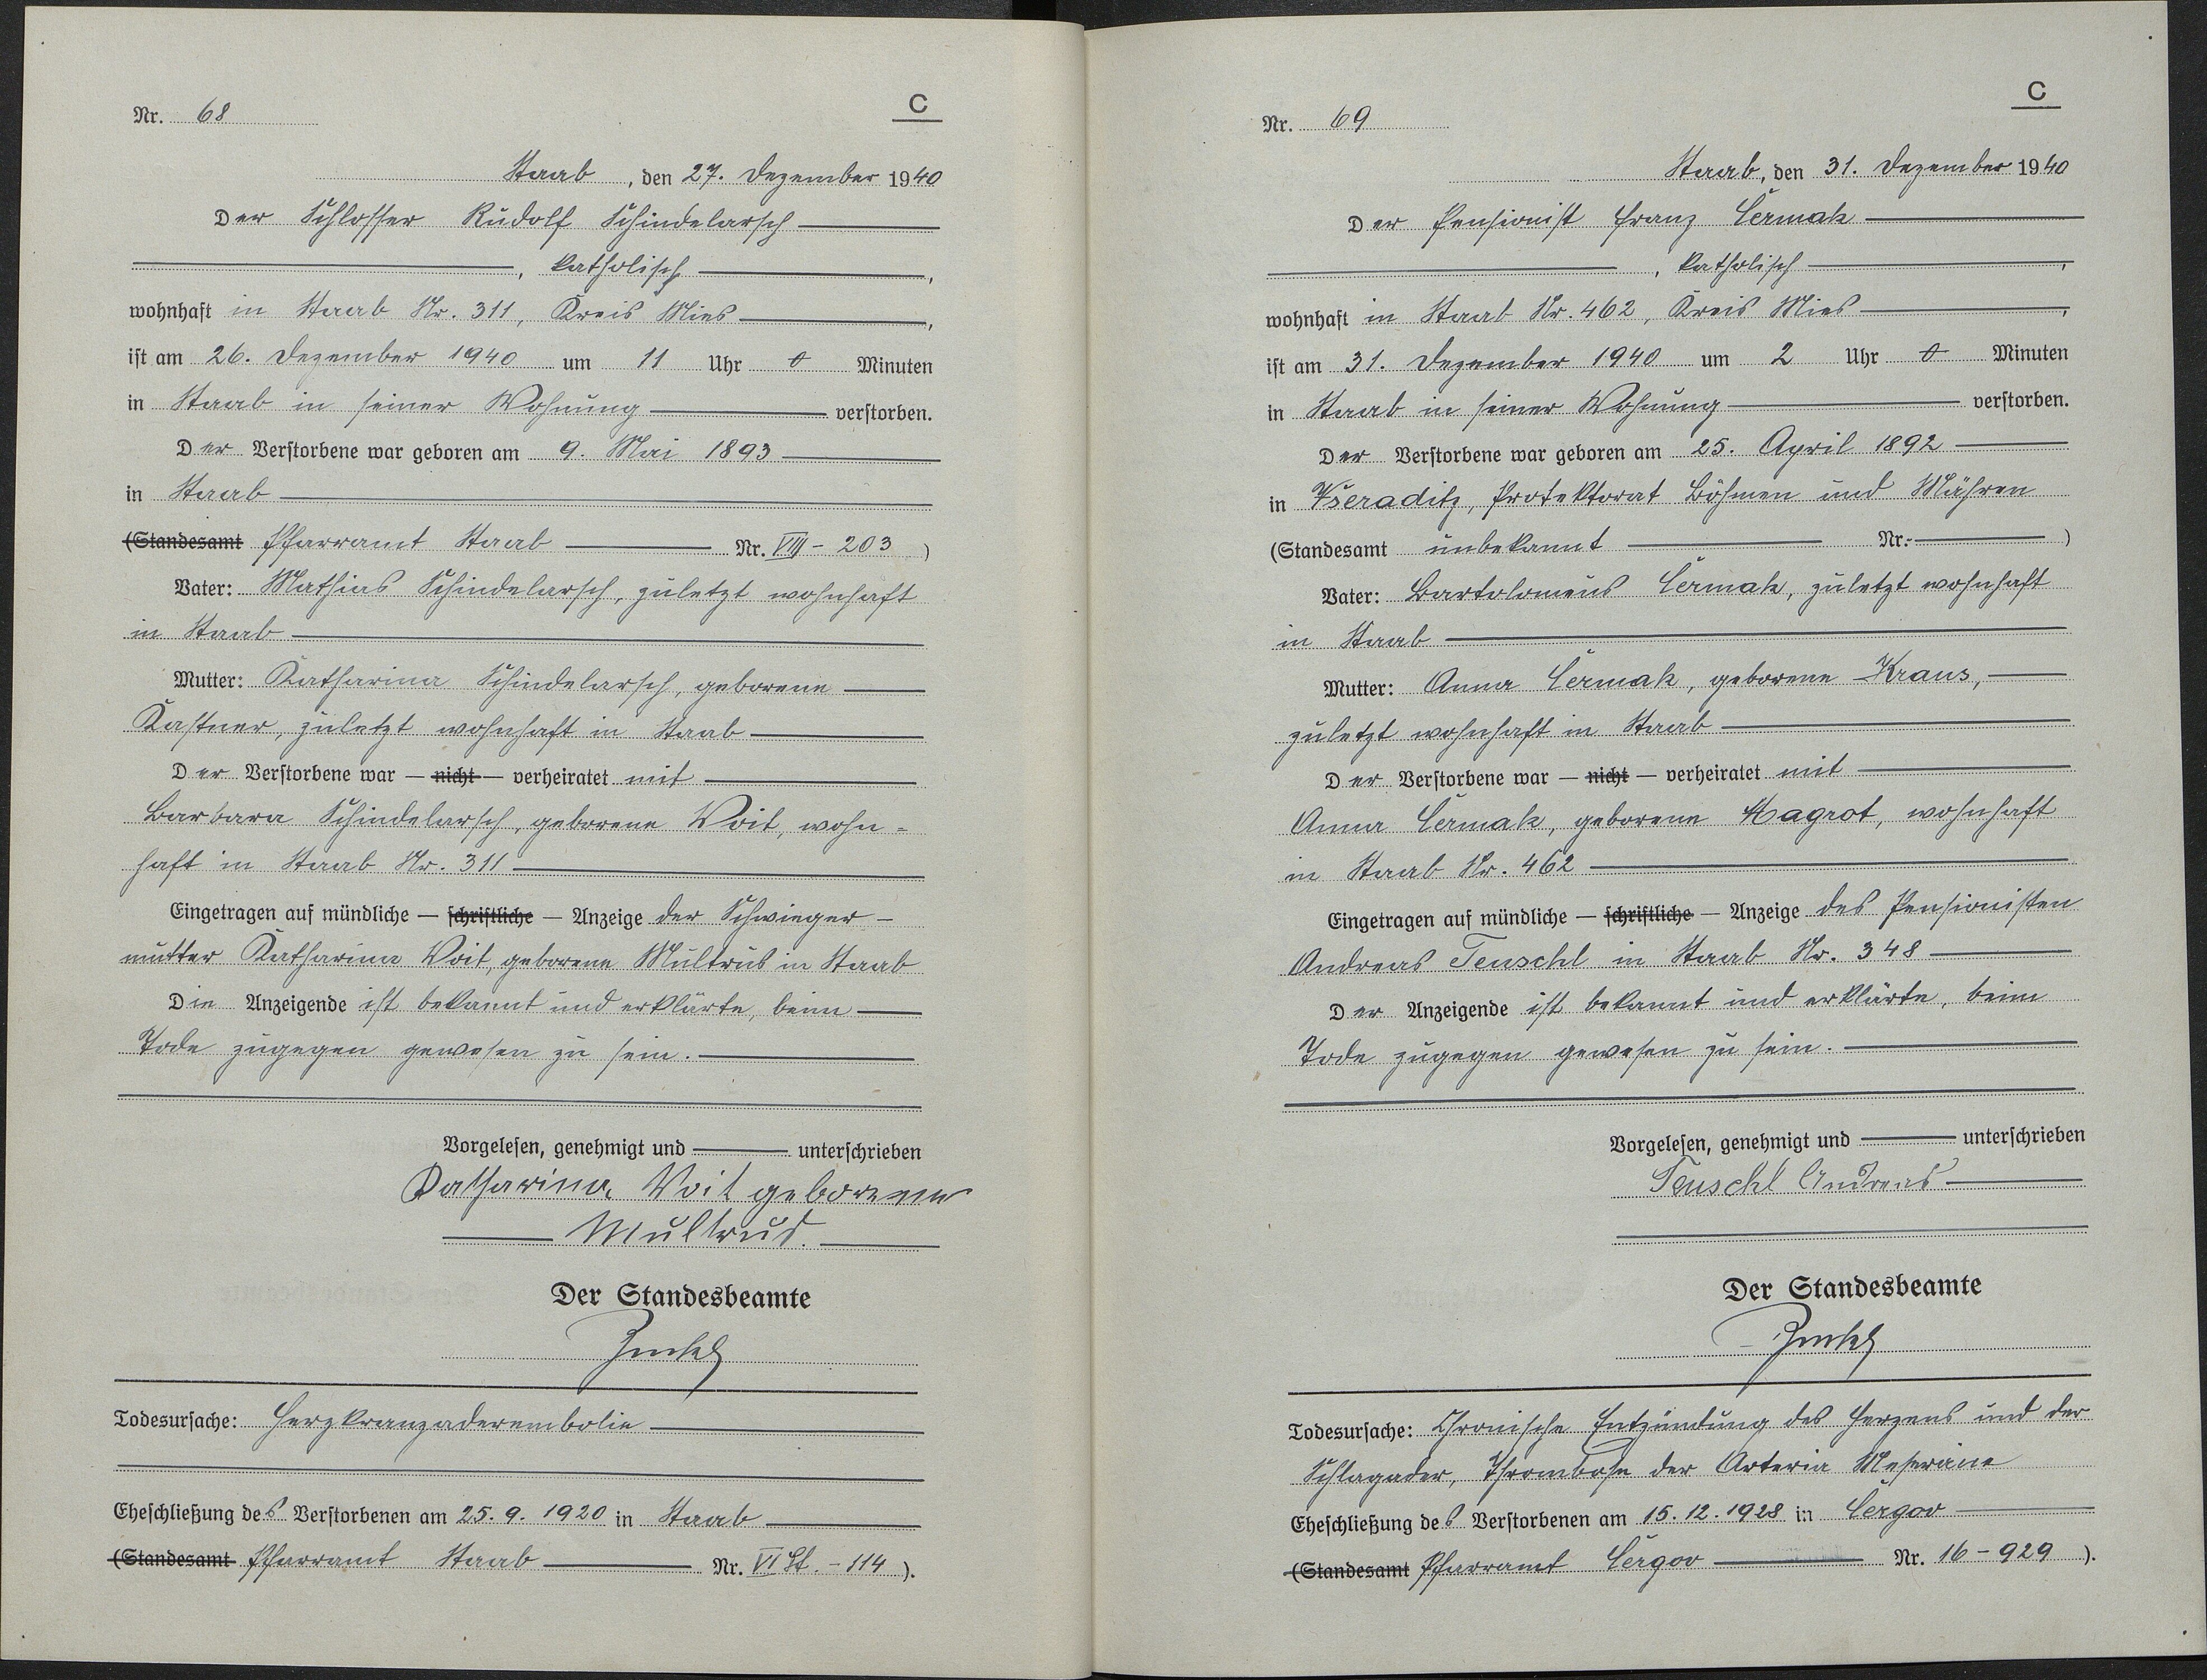 Nr. 68
C
Staab, den 27. Dezember 1940
Der Schlosser Rudolf Schindelarsch
, katholisch,
wohnhaft in Staab Nr. 311, Kreis Mies,
ist am 26. Dezember 1940 um 11 Uhr 0 Minuten
in Staab in seiner Wohnung verstorben.
Der Verstorbene war geboren am 9. Mai 1893
in Staab
(Standesamt Pfarramt Staab Nr. VIII - 203)
Vater: Mathias Schindelarsch, zuletzt wohnhaft
in Staab
Mutter: Katharina Schindelarsch, geborene
Kastner, zuletzt wohnhaft in Staab
Der Verstorbene war — nicht — verheiratet mit
Barbara Schindelarsch, geborene Voit, wohn=
haft in Staab Nr. 311
Eingetragen auf mündliche — schriftliche — Anzeige der Schwieger-
mutter Katharina Voit, geborene Multrus in Staab
Die Anzeigende ist bekannt und erklärte, beim
Tode zugegen gewesen zu sein.
Vorgelesen, genehmigt und unterschrieben
Katharina Voit geborene
Multrus.
Der Standesbeamte
Todesursache: Herzkranzaderembolie
Eheschließung des Verstorbenen am 25. 9. 1920 in Staab
(Standesamt Pfarramt Staab Nr. VI St. - 114).
Nr. 69
C
Staab, den 31. Dezember 1940
Der Pensionist Franz Čermak
, katholisch,
wohnhaft in Staab Nr. 462, Kreis Mies,
ist am 31. Dezember 1940 um 2 Uhr 0 Minuten
in Staab in seiner Wohnung verstorben.
Der Verstorbene war geboren am 25. April 1892
in Všeraditz, Protektorat Böhmen und Mähren
(Standesamt unbekannt Nr.)
Vater: Bartolomeus Čermak, zuletzt wohnhaft
in Staab
Mutter: Anna Čermak, geborene Kraus,
zuletzt wohnhaft in Staab
Der Verstorbene war — nicht — verheiratet mit
Anna Čermak, geborene Magrot, wohnhaft
in Staab Nr. 462
Eingetragen auf mündliche — schriftliche — Anzeige des Pensionisten
Andreas Teuschl in Staab Nr. 348
Der Anzeigende ist bekannt und erklärte, beim
Tode zugegen gewesen zu sein.
Vorgelesen, genehmigt und unterschrieben
Teuschl Andreas
Der Standesbeamte
Todesursache: Chronische Entzündung des Herzens und der
Schlagader, Thrombose der Arteria
Eheschließung des Verstorbenen am 15. 12. 1928 in Čergov
(Standesamt Pfarramt Čergov Nr. 16 - 929).